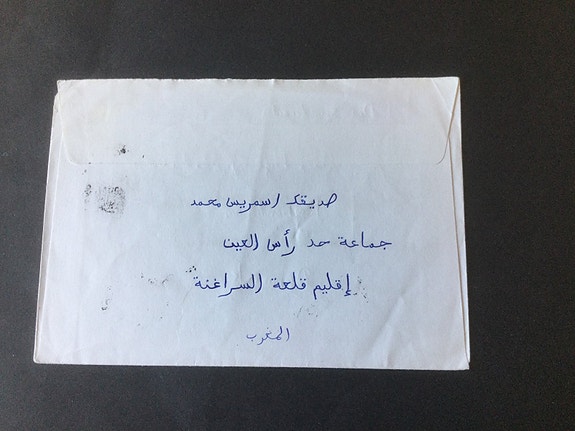 صديقك اسمريس محمد
جماعة حد رأس العين
إقليم قلعة السراغنة
المغرب